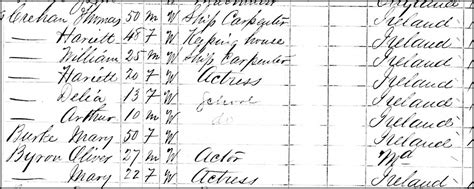 Crehan Thomas 50 m W Ship Carpenter Ireland
— Harriett 48 F W Keeping House Ireland
— William 25 m W Ship Carpenter Ireland
— Harriett 20 F W Actress Ireland
— Delia 13 F W School Ireland
— Arthur 10 m W do Ireland
Burke Mary 50 F W Ireland
Byron Oliver 27 m W Actor Md
— Mary 22 F W Actress Ireland